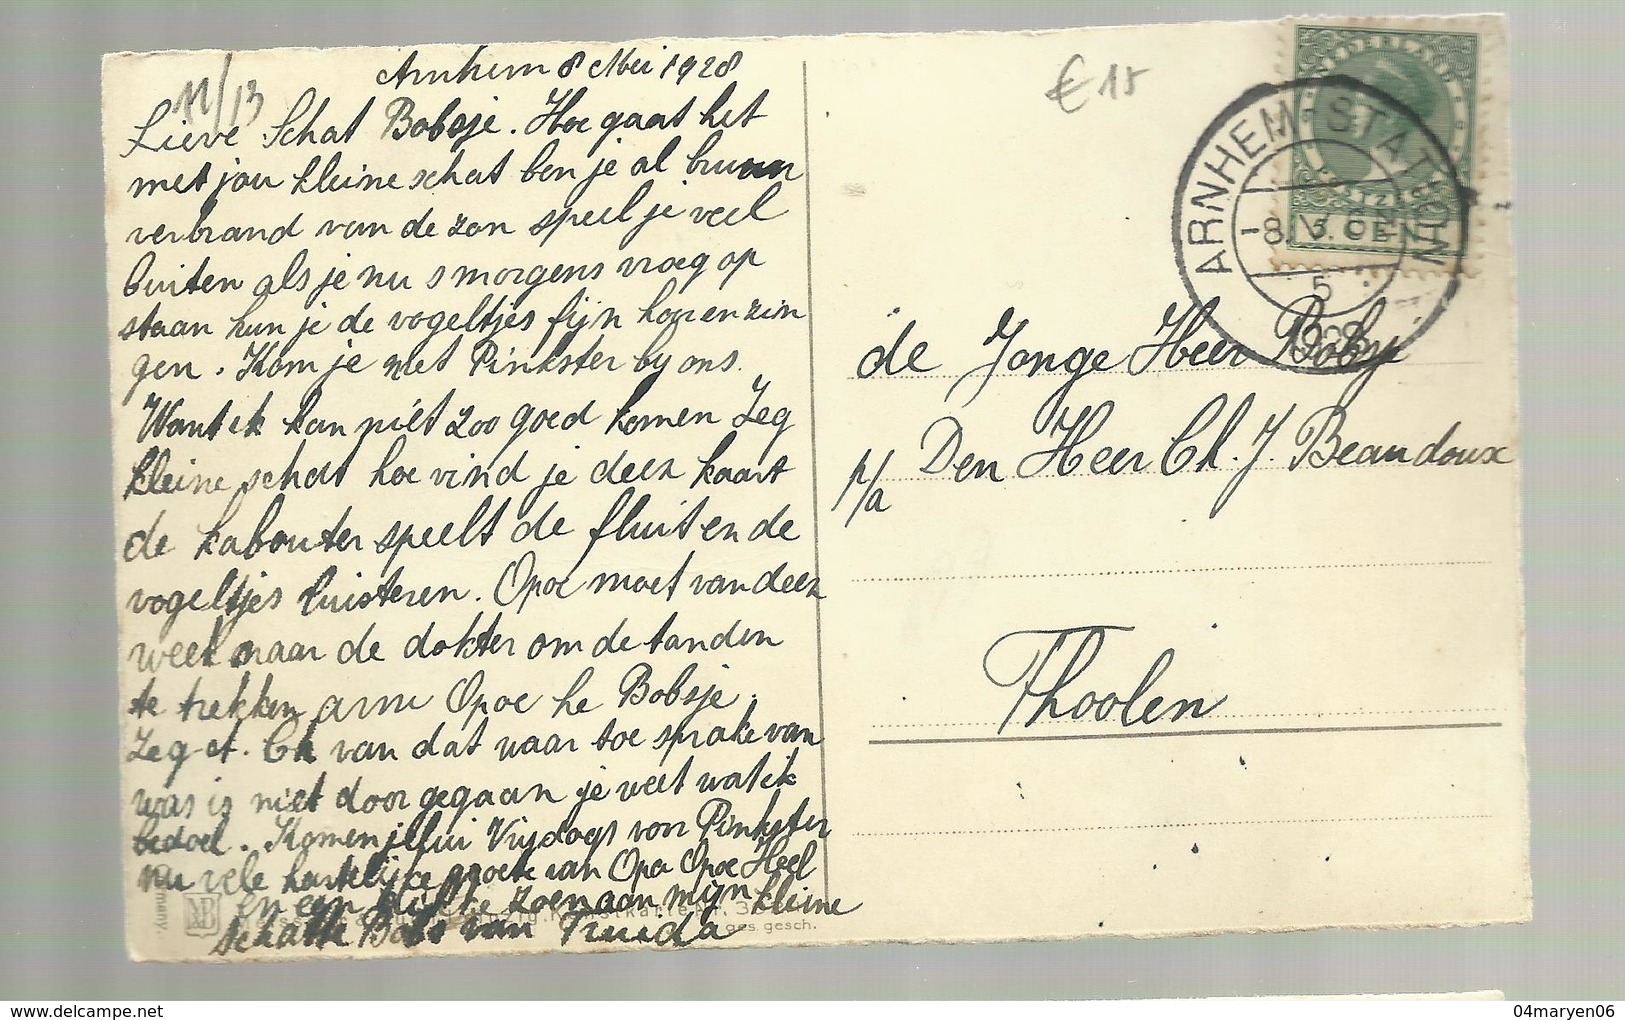 Arnhem 8 Mei 1928
11/13
Lieve Schat Bobsje. Hoe gaat het
met jou kleine schat ben je al bruin
verbrand van de zon speel je veel
buiten als je nu smorgens vroeg op
staan kun je de vogeltjes fijn hooren zin
gen. Kom je met Pinkster by ons.
Want ik kan niet zoo goed komen Zeg
kleine schat hoe vind je deez kaart
de kabouter speelt de fluit en de
vogeltjes luisteren. Opoe moet van deez
week naar de dokter om de tanden
te trekken arme Opoe he Bobsje.
Zeg van dat waar toe sprake van
was is niet door gegaan je weet wat ik
bedoel. Komen jellui Vrijdags voor Pinkster
nu vele hartelijke groete van Opa Opoe Heel
en een dikke zoen aan mijn kleine
schatte Bobs van Truida
ges. gesch.
€ 15
NEDERLAND
POSTZEGEL
5 CENT
ARNHEM STATION
-8.V.
5
1928
de Jonge Heer Boby
p/a Den Heer Ch. J. Beaudoux
Thoolen
04maryen06